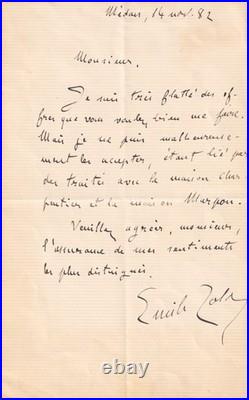 Médan, 14 nov. 82
Monsieur,
Je suis très flatté des of-
fres que vous voulez bien me faire.
Mais je ne puis malheureuse-
ment les accepter, étant lié par
des traités avec la maison Char
pentier et la maison Marpon.
Veuillez agréer, monsieur,
l'assurance de mes sentiments
les plus distingués.
Emile Zola